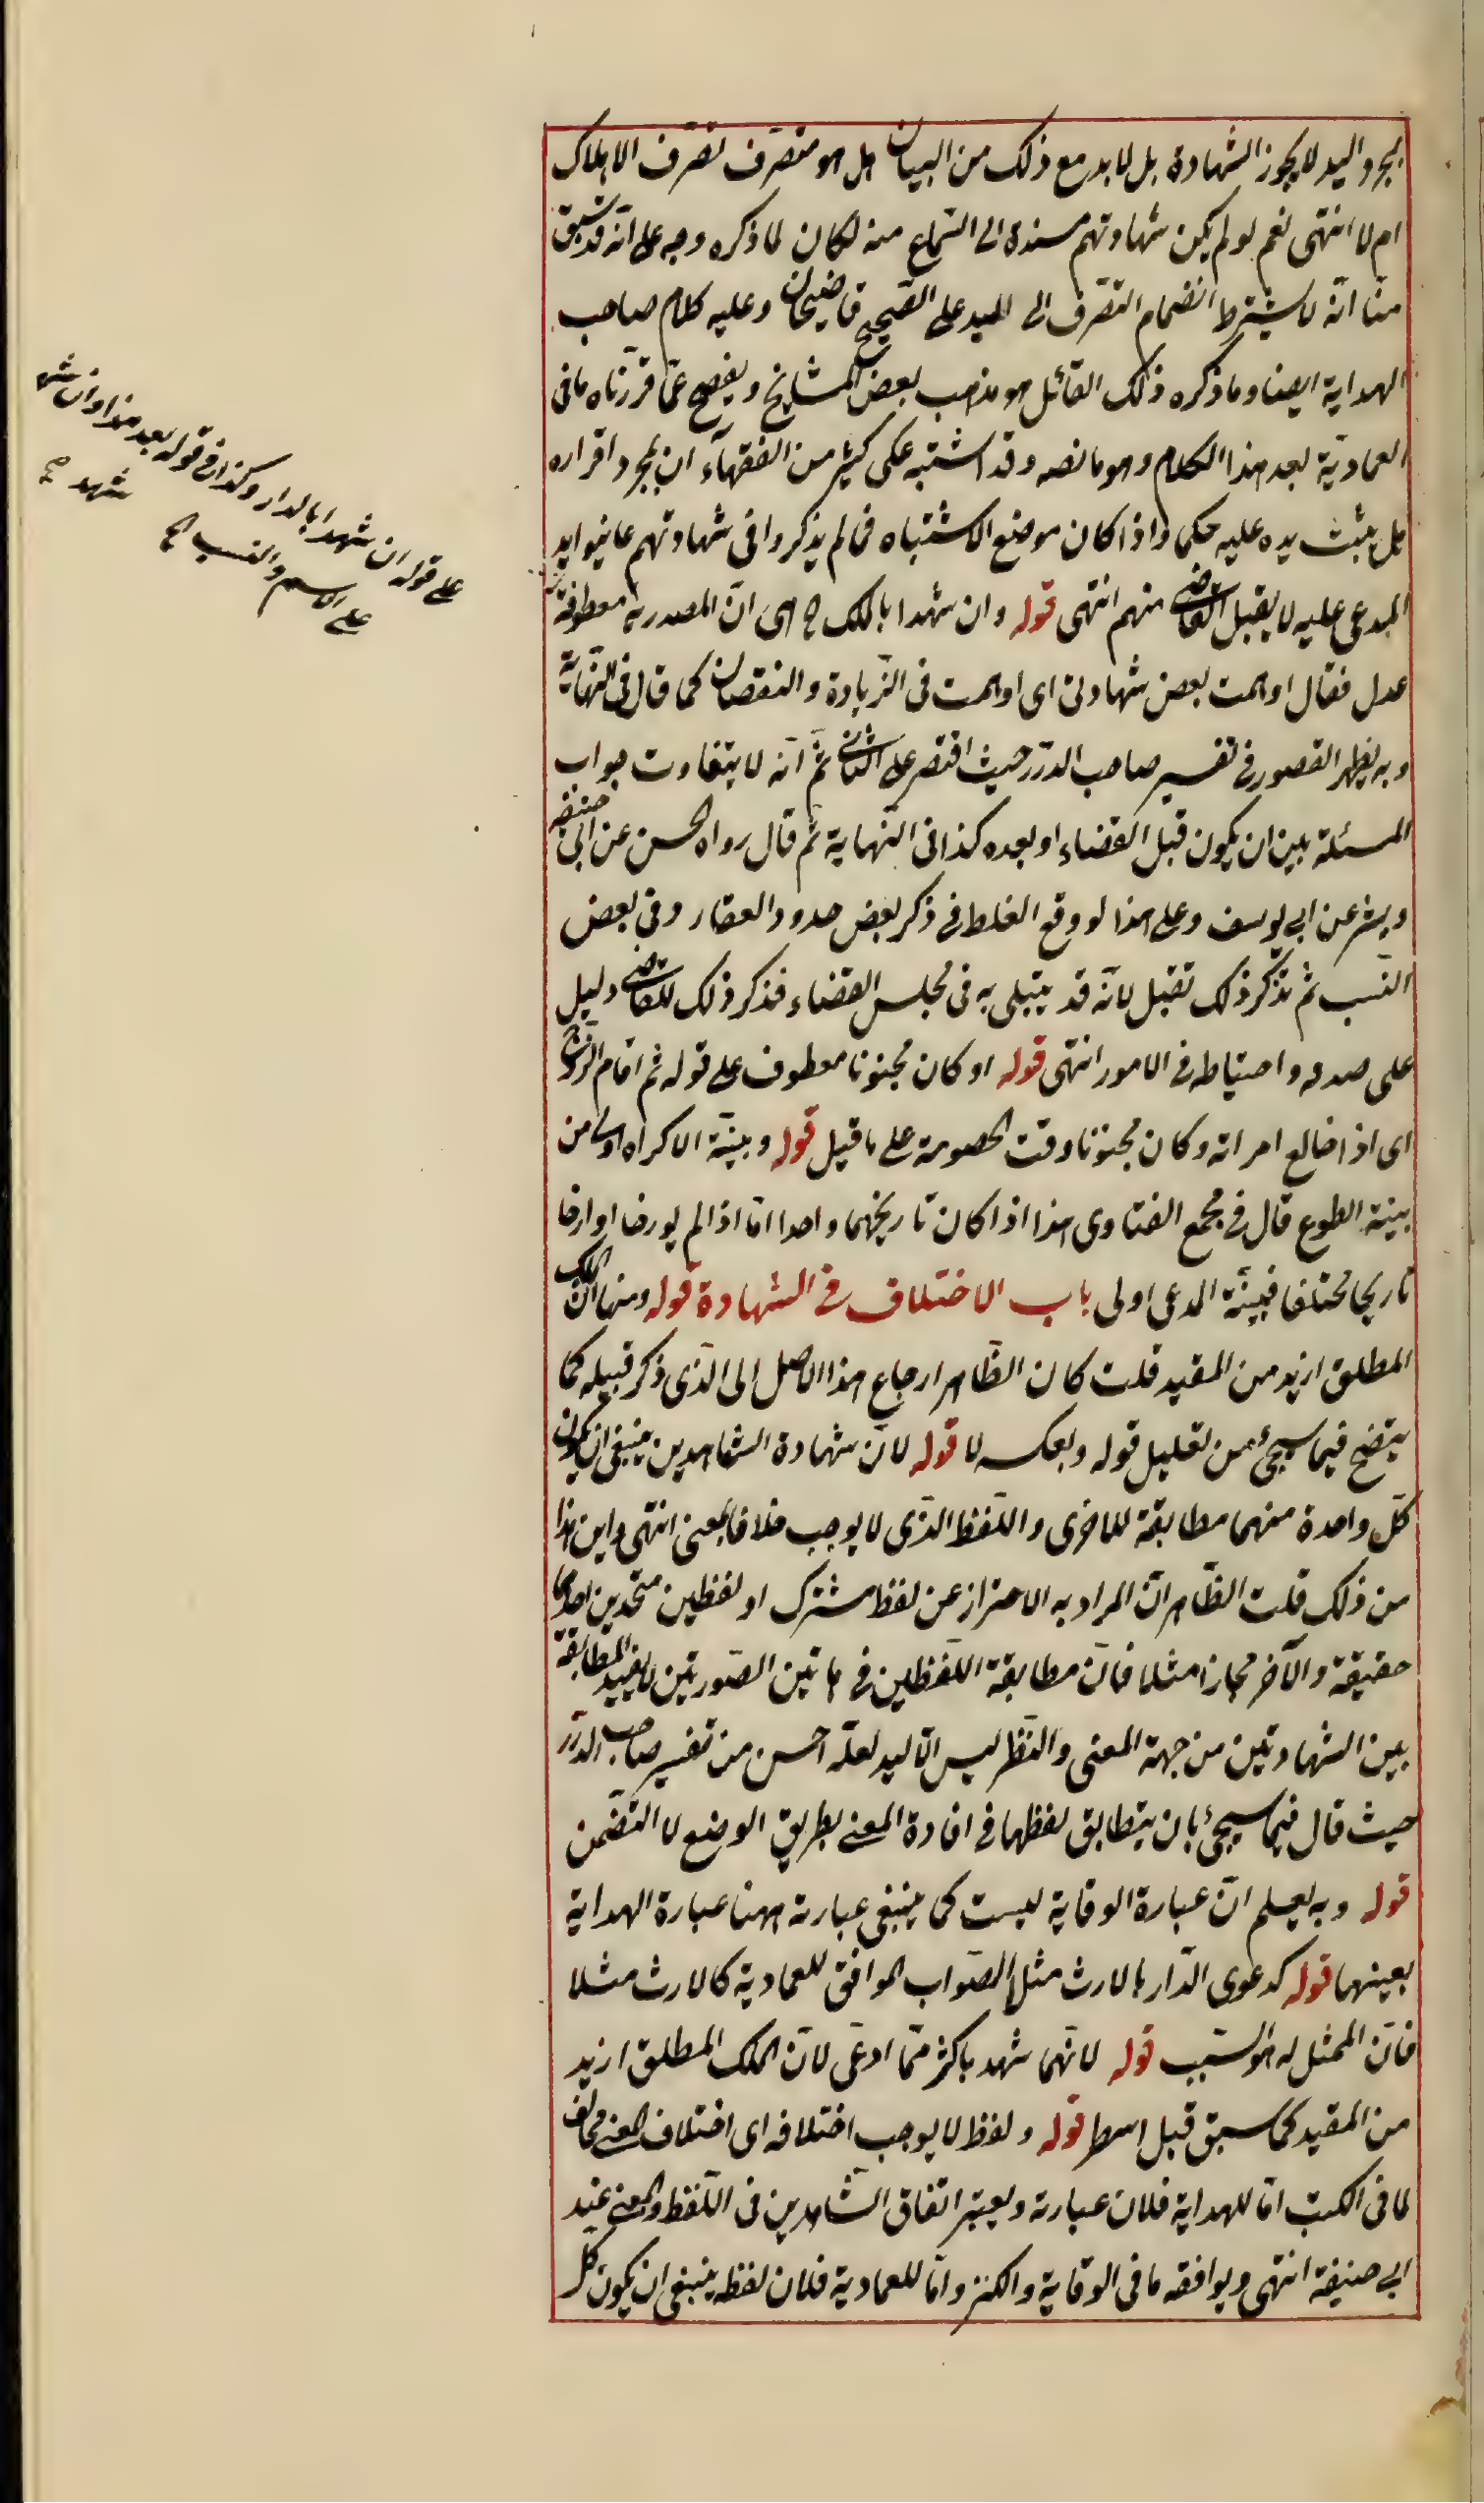 بمجرد اليد لا يجوز الشهادة بل لا بد مع ذلك من البيان هل هو متصرف تصرف الاملاك
ام لا انتهى نعم لو لم يكن شهادتهم مسندة الى السماع منه لكان لما ذكره وجه على انه قد سبق
منا انه لا يشترط انضمام التصرف الى اليد على الصحيح قاضيخان وعليه كلام صاحب
الهداية ايضا وما ذكره ذلك القائل هو مذهب بعض المشايخ ويفصح عما قررناه ما فى
العمادية بعد هذا الكلام وهو ما نصه وقد اشتبه على كثير من الفقهاء ان بمجرد اقراره
هل يثبت يده عليه حكما واذا كان موضع الاشتباه فما لم يذكروا فى شهادتهم عاينوا يد
المدعى عليه لا يقبل القاضى منهم انتهى قوله وان شهدا بالملك هى ان المصدرية معطوفة
عدل فقال اوهمت بعض شهادتى اى اوهمت فى الزيادة والنقصان كما قال فى النهاية
وبه يظهر القصور فى تفسير صاحب الدرر حيث اقتصر على الثانى ثم انه لا يتفاوت جواب
المسئلة بين ان يكون قبل القضاء او بعده كذا فى النهاية ثم قال رواه الحسن عن ابى حنيفة
وبشر عن ابى يوسف وعلى هذا لو وقع الغلط فى ذكر بعض حدود العقار وفى بعض
النسب ثم تذكر ذلك تقبل لانه قد يبتلى به فى مجلس القضاء فذكر ذلك للقاضى دليل
على صدقه واحتياطه فى الامور انتهى قوله او كان مجنونا معطوف على قوله ثم اقام الزوج
اى اذا خالع امراته وكان مجنونا وقت الخصومة على ما قيل قوله وبينة الاكراه اولى من
بينة الطوع قال فى مجمع الفتاوى هذا اذا كان تاريخهما واحدا اما اذا لم يورخا او ارخا
تاريخا مختلفا فبينة المدعى اولى باب الاختلاف فى الشهادة قوله ومنها ان الملك
المطلق ازيد من المقيد قلت كان الظاهر ارجاع هذا الاصل الى الذى ذكر قبيله كما
يتضح فيما سيجئ من تعليل قوله وبعكسه لا قوله لان شهادة الشاهدين ينبغى ان يكون
كل واحدة منهما مطابقة للاخرى واللفظ الذى لا يوجب خلافا لمعنى انتهى واين هذا
من ذلك قلت الظاهر ان المراد به الاحتراز عن لفظ مشترك او لفظين متحدين احدهما
حقيقة والآخر مجازا مثلا فان مطابقة اللفظين فى هاتين الصورتين لا يفيد المطابقة
بين الشهادتين من جهة المعنى والنظر ليس الا اليه لعله احسن من تفسير صاحب الدرر
حيث قال فيما سيجئ بان يتطابق لفظهما فى افادة المعنى بطريق الوضع لا التضمن
قوله وبه يعلم ان عبارة الوقاية ليست كما ينبغى عبارته ههنا عبارة الهداية
بعينها قوله كدعوى الدار بالارث مثل الصواب الموافق للعمادية كالارث مثلا
فان الممثل له هو السبب قوله لانهما شهد باكثر مما ادعى لان الملك المطلق ازيد
من المقيد كما سبق قبل اسطر قوله ولفظ لا يوجب اختلافه اى اختلاف المعنى مخالف
لما فى الكتب اما للهداية فلان عبارته ويعتبر اتفاق الشاهدين فى اللفظ والمعنى عند
ابى حنيفة انتهى ويوافقه ما فى الوقاية والكنز واما للعمادية فلان لفظه ينبغى ان يكون كل
على قوله ان شهدا بالدار وكذا فى قوله بعد هذا وان شهد
على الاسم والنسب شهد صح